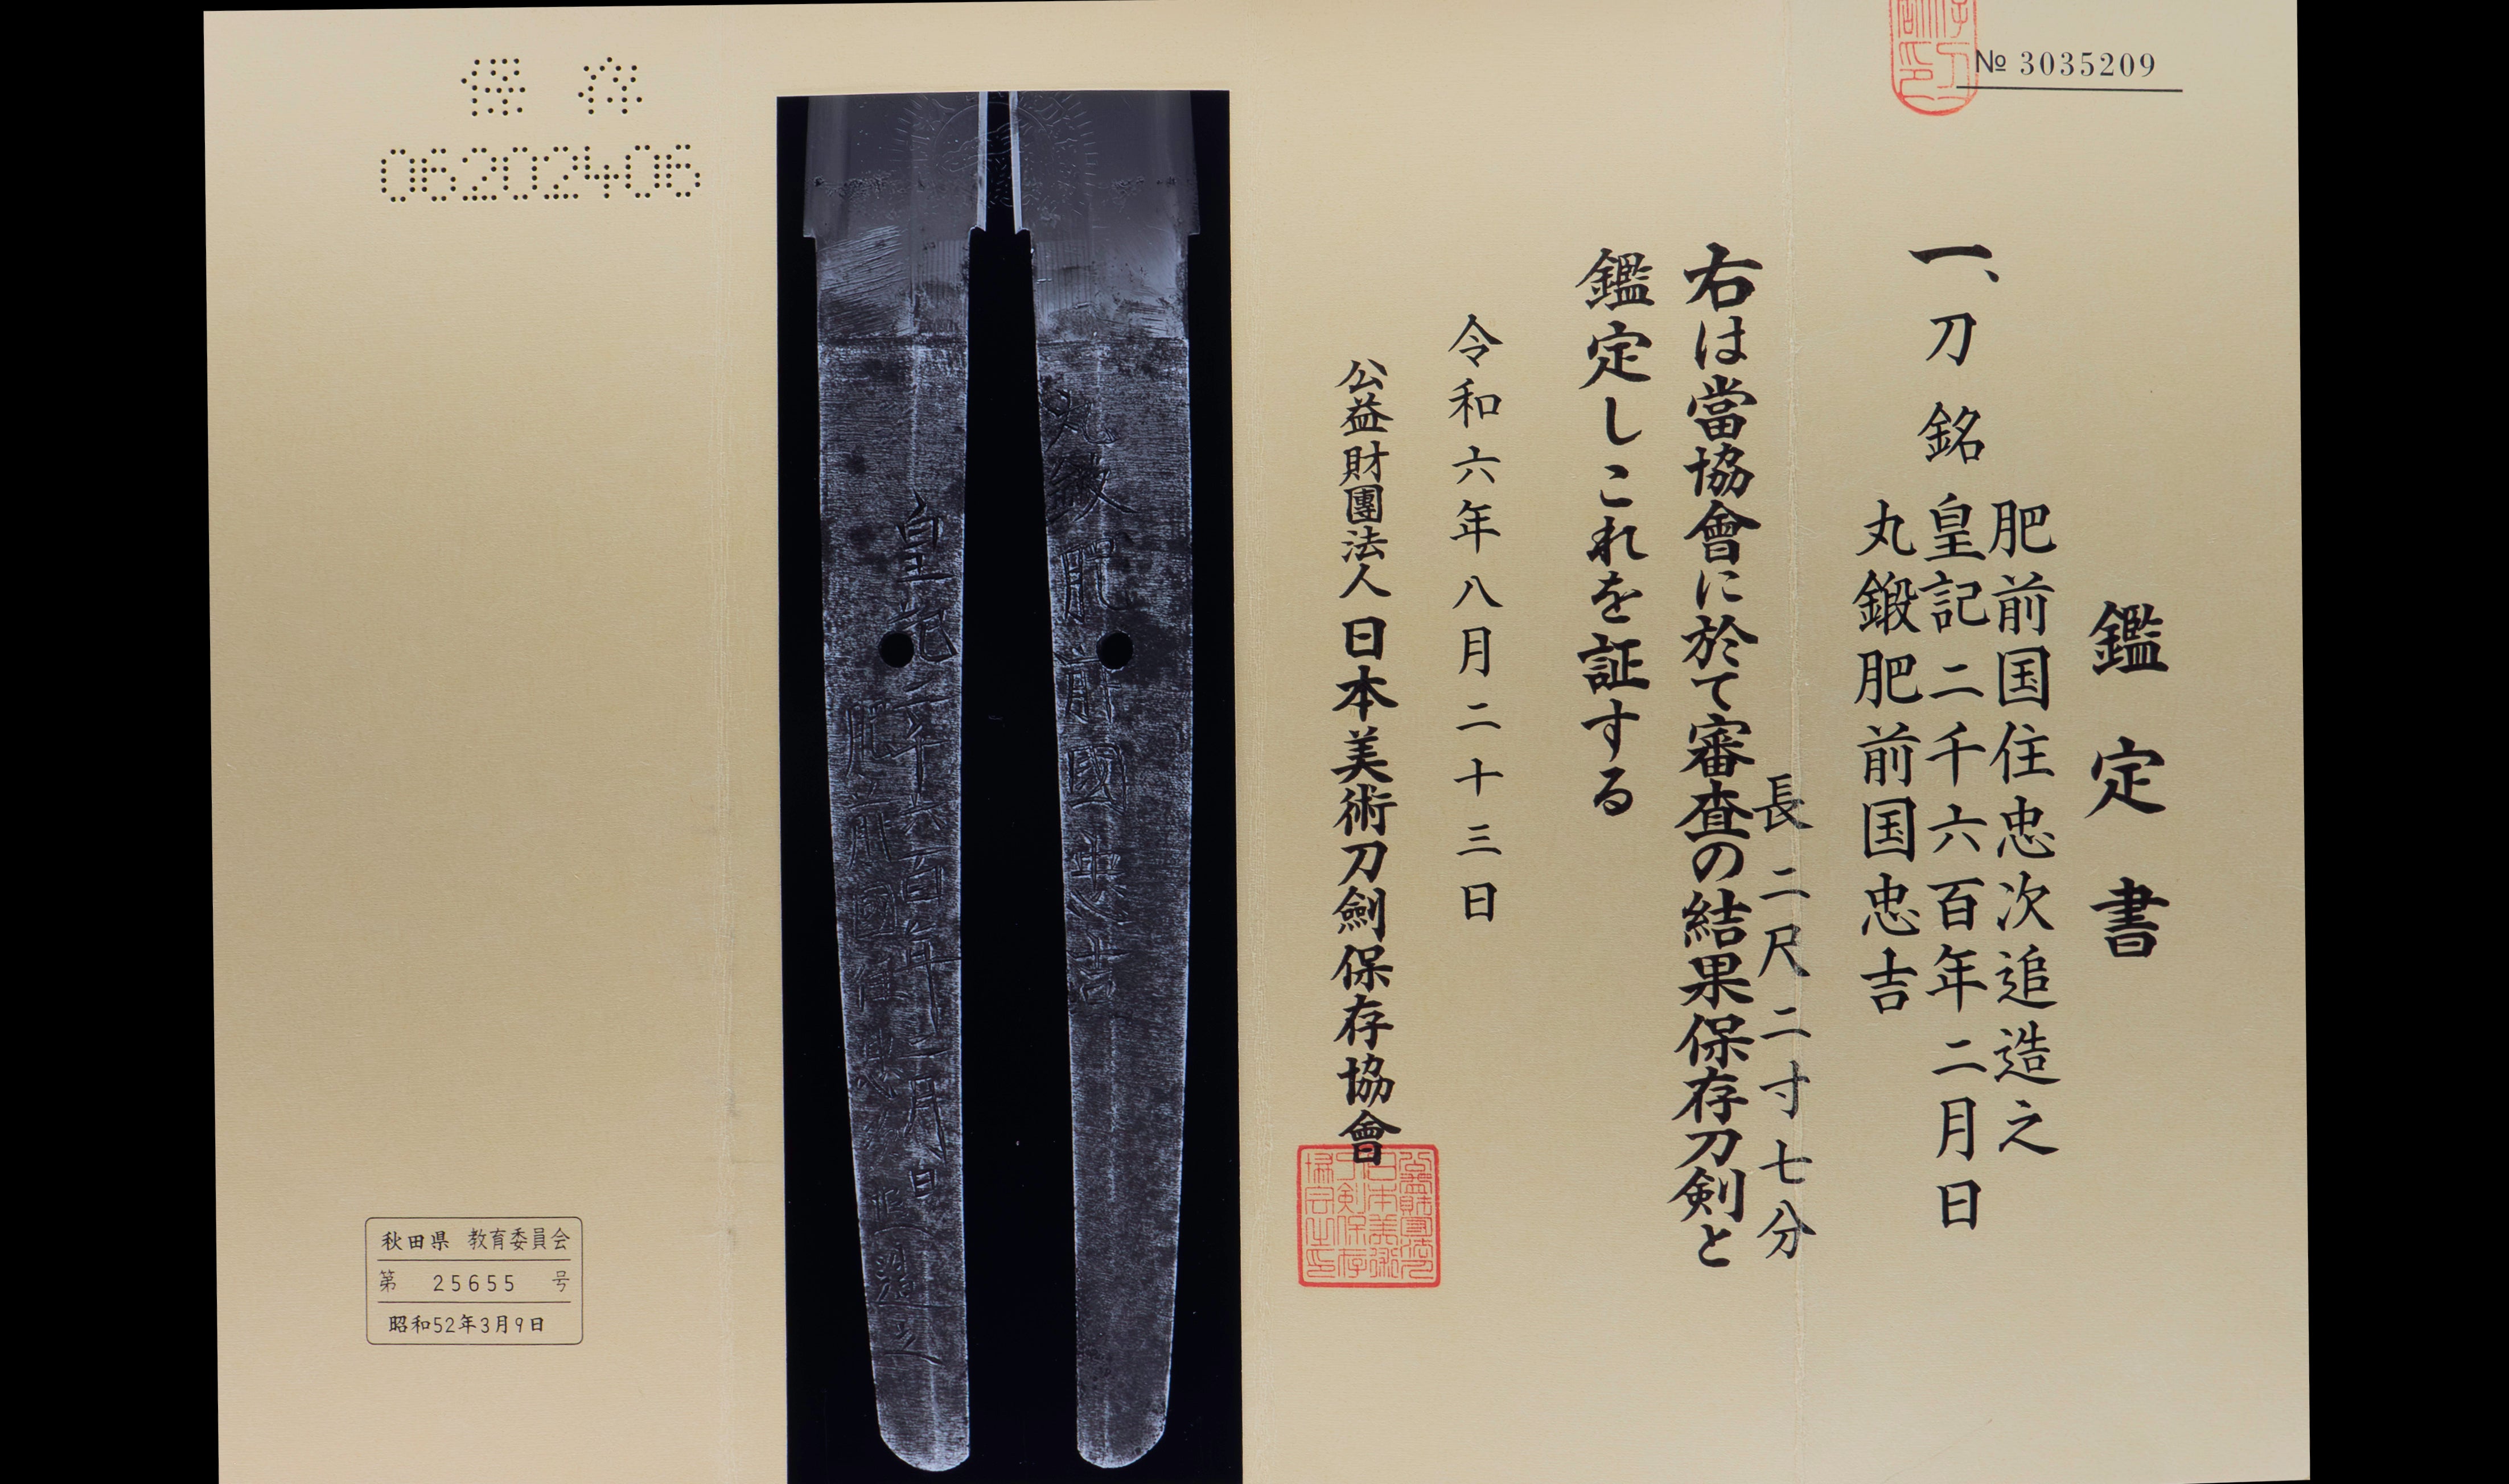 № 3035209
鑑定書
一、刀 銘
肥前国住忠次追造之
皇記二千六百年二月日
丸鍛肥前国忠吉
長 二尺二寸七分
右は當協會に於て審査の結果保存刀剣と
鑑定しこれを証する
令和六年八月二十三日
公益財團法人 日本美術刀劍保存協會
丸鍛肥前國忠吉
皇記二千六百年二月日
肥前國住忠次
追造之
保存
06202406
秋田県 教育委員会
第 25655 号
昭和52年3月9日